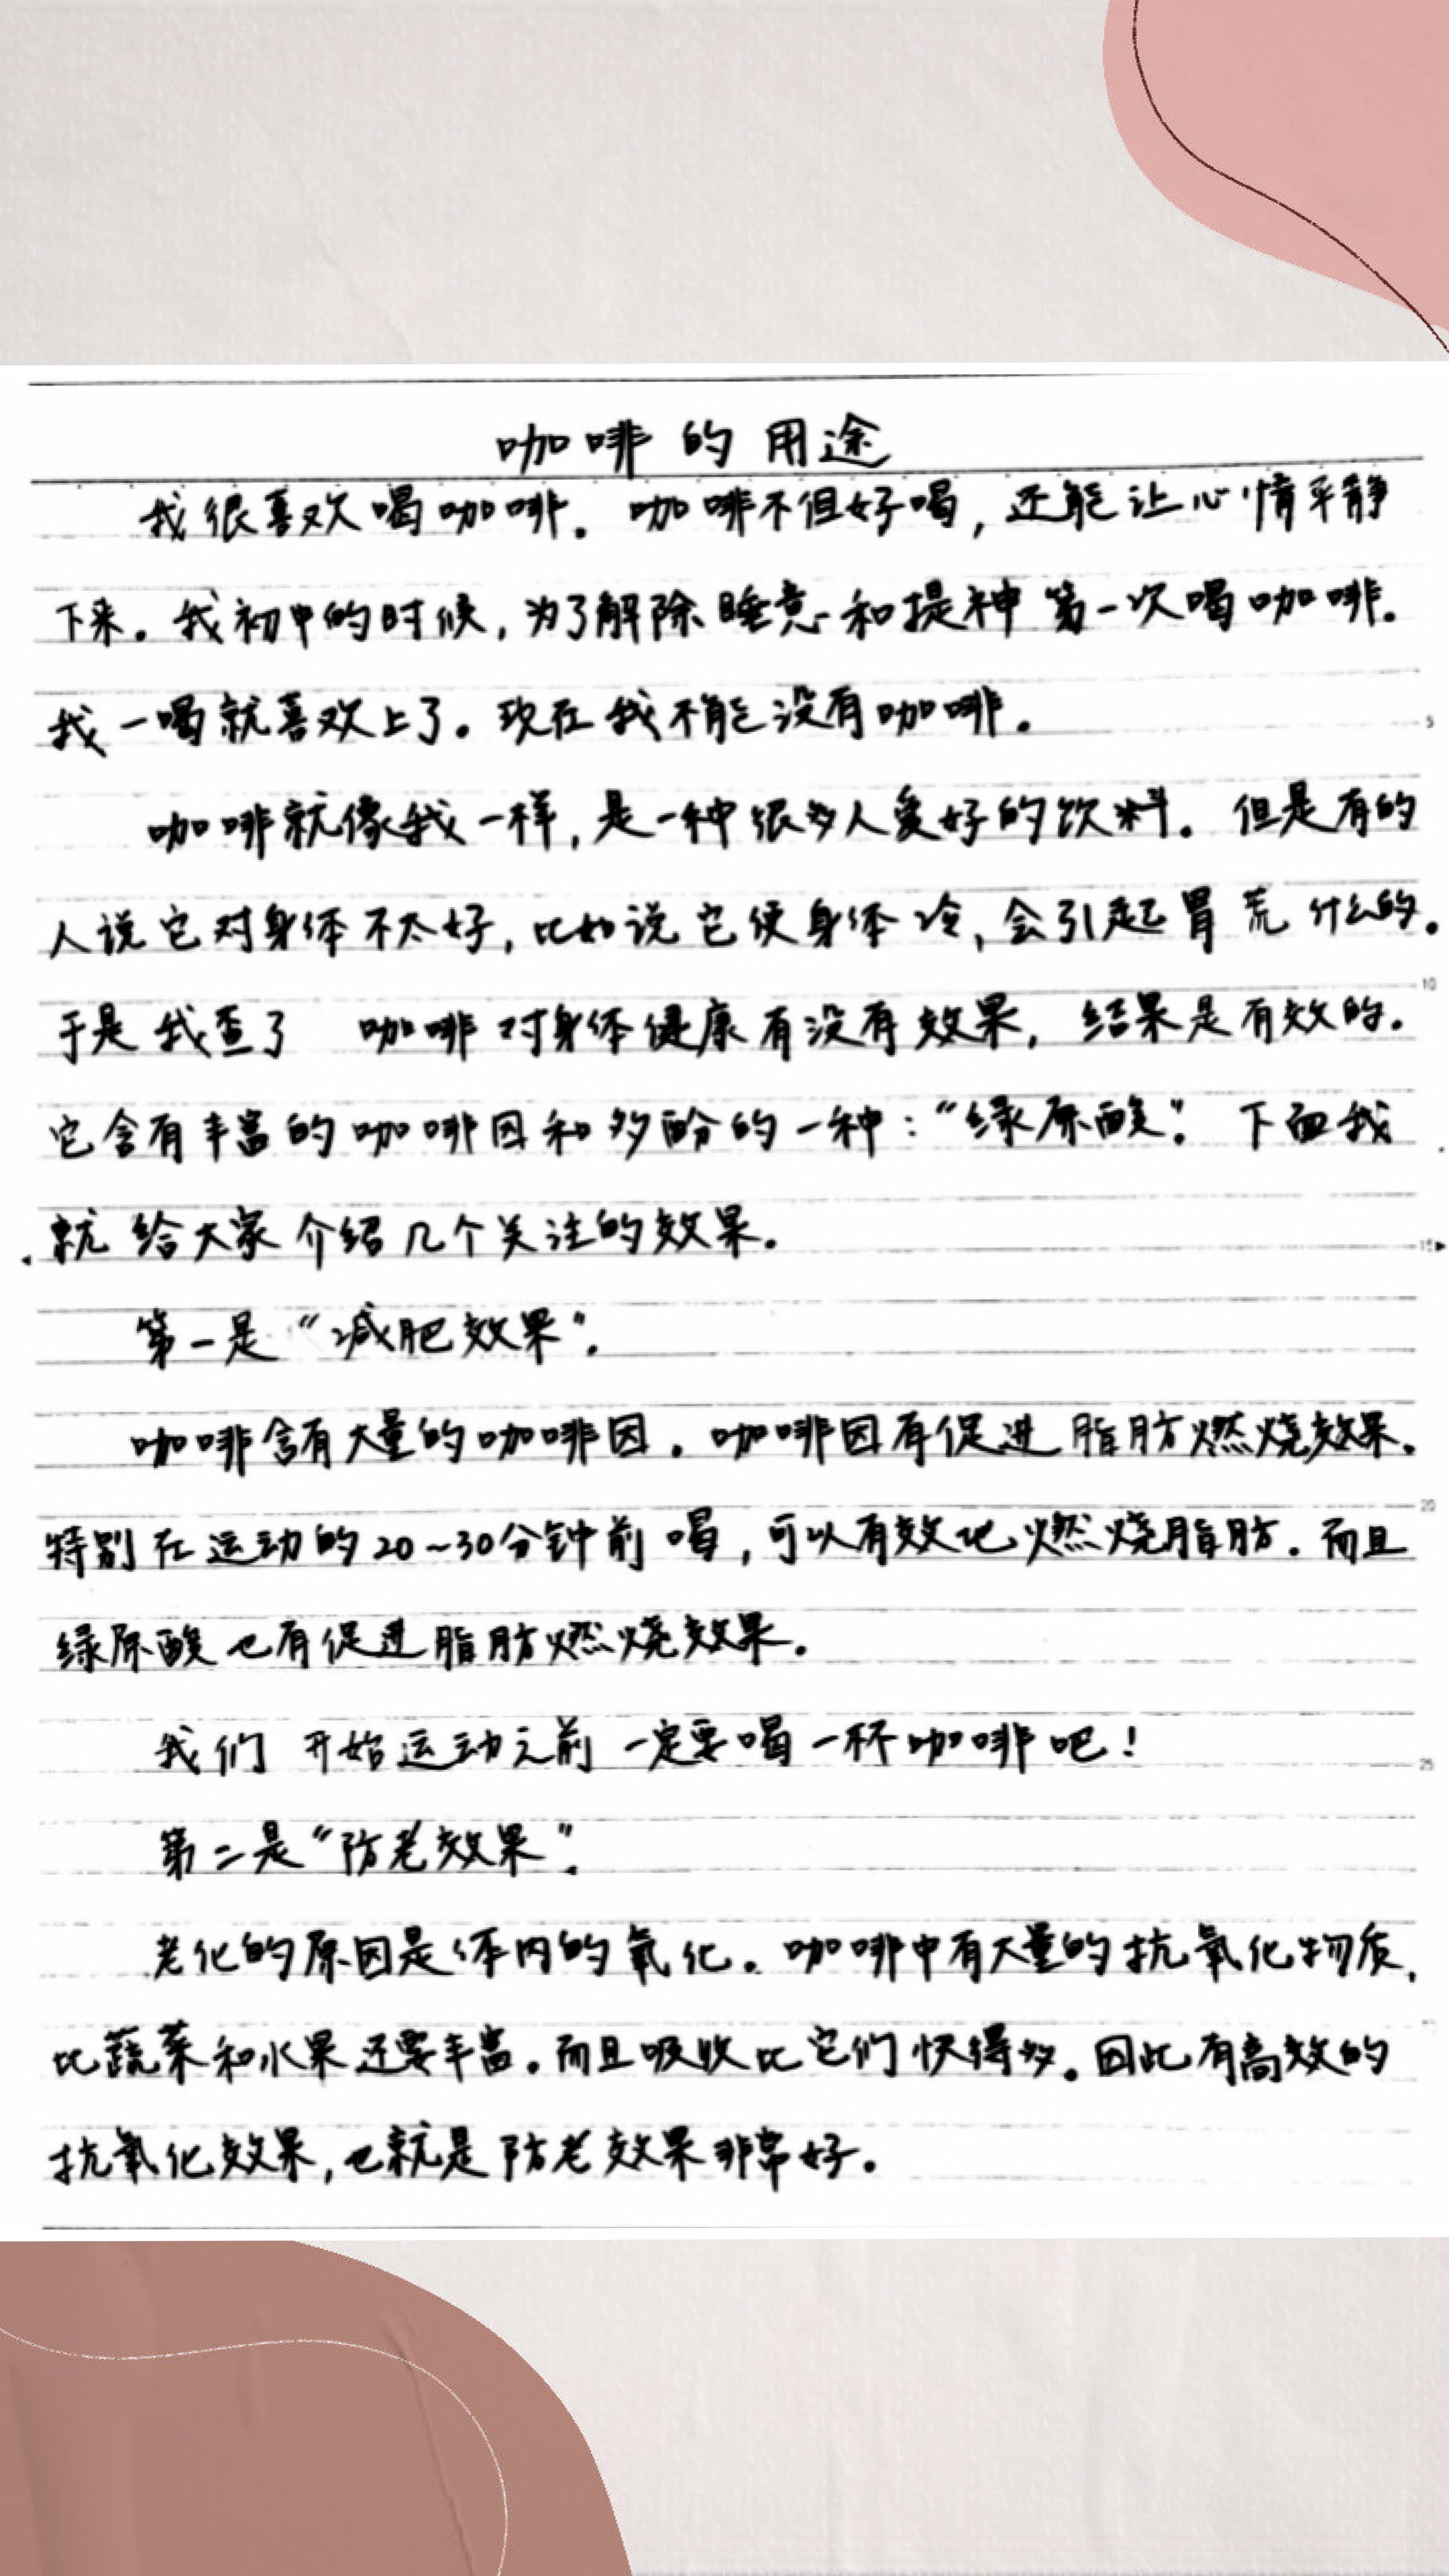 咖啡的用途
我很喜欢喝咖啡。咖啡不但好喝，还能让心情平静
下来。我初中的时候，为了解除睡意和提神第一次喝咖啡。
我一喝就喜欢上了。现在我不能没有咖啡。
5
咖啡就像我一样，是一种很多人爱好的饮料。但是有的
人说它对身体不太好，比如说它使身体冷，会引起胃荒什么的。
10
于是我查了 咖啡对身体健康有没有效果，结果是有效的。
它含有丰富的咖啡因和多酚的一种：“绿原酸”。下面我
就给大家介绍几个关注的效果。
15
第一是“减肥效果”。
咖啡含有大量的咖啡因。咖啡因有促进脂肪燃烧效果。
20
特别在运动的20~30分钟前喝，可以有效地燃烧脂肪。而且
绿原酸也有促进脂肪燃烧效果。
我们开始运动之前一定要喝一杯咖啡吧！
25
第二是“防老效果”。
老化的原因是体内的氧化。咖啡中有大量的抗氧化物质，
比蔬菜和水果还要丰富。而且吸收比它们快得多。因此有高效的
抗氧化效果，也就是防老效果非常好。